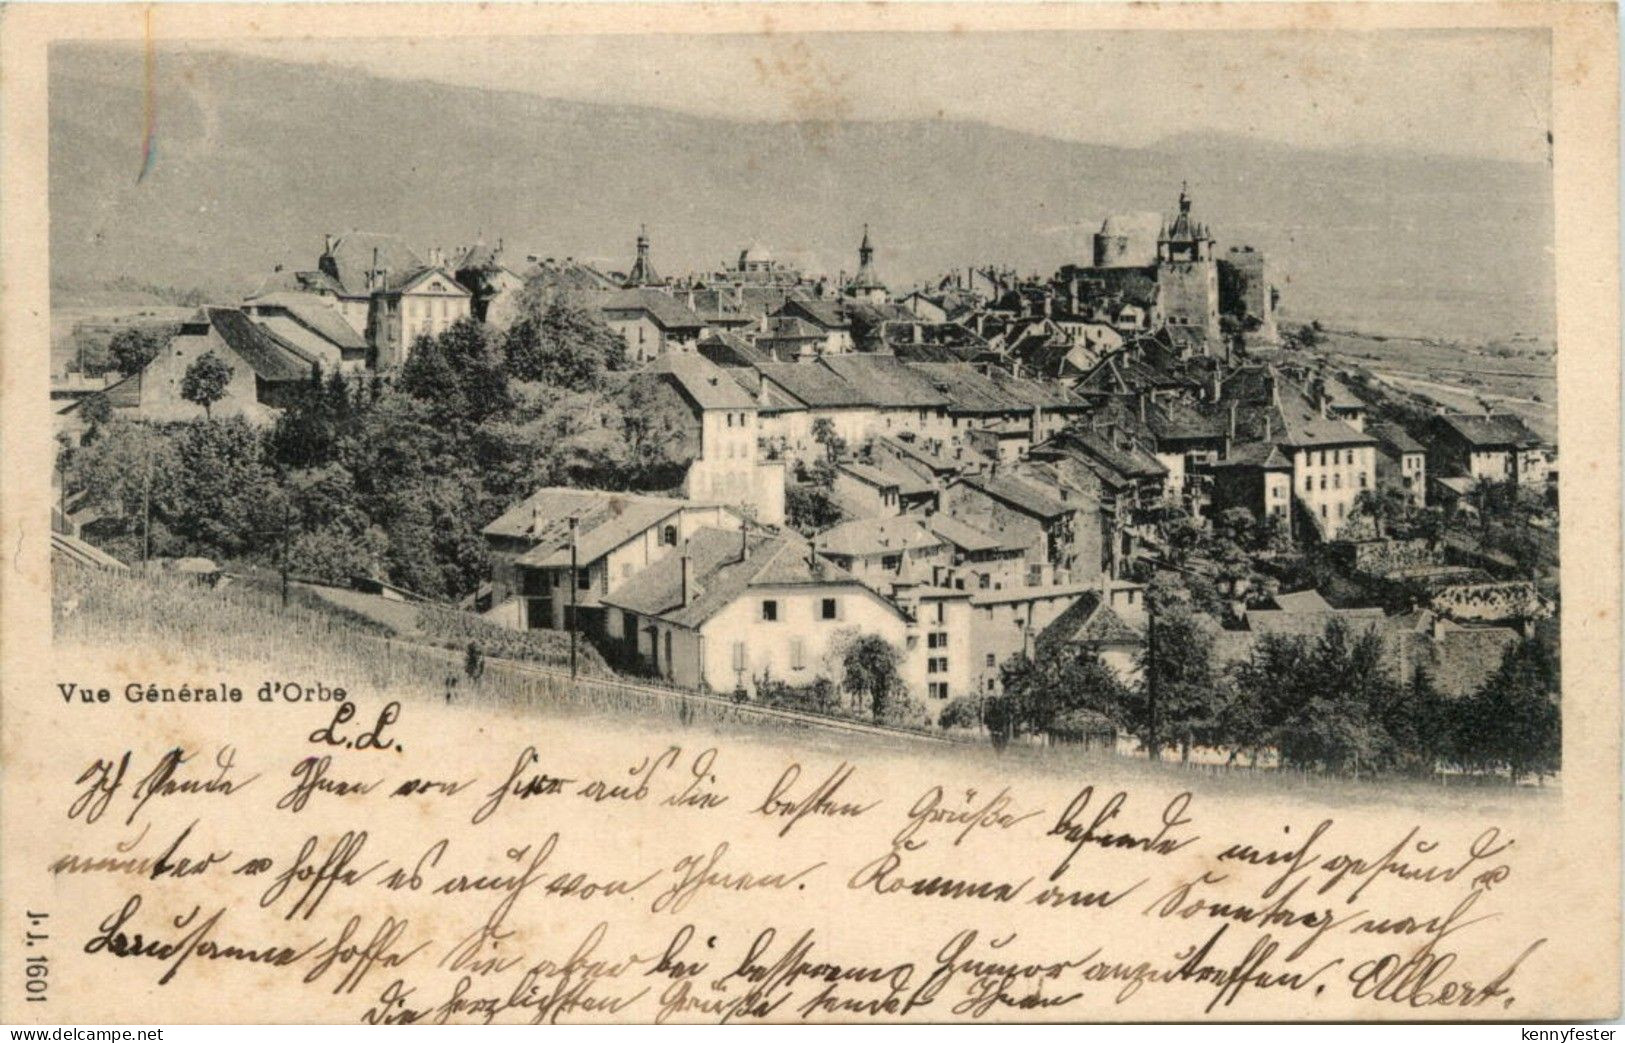 Vue Générale d'Orbe
L.L.
Ich sende Ihnen von hier aus die besten Grüße befinde mich gesund u
munter u hoffe es auch von Ihnen. Komme am Sonntag nach
Lausanne hoffe Sie aber bei besserem Humor anzutreffen. Albert.
die herzlichsten Grüße sendet Ihnen
J.J. 1601
www.delcampe.net
kennyfester